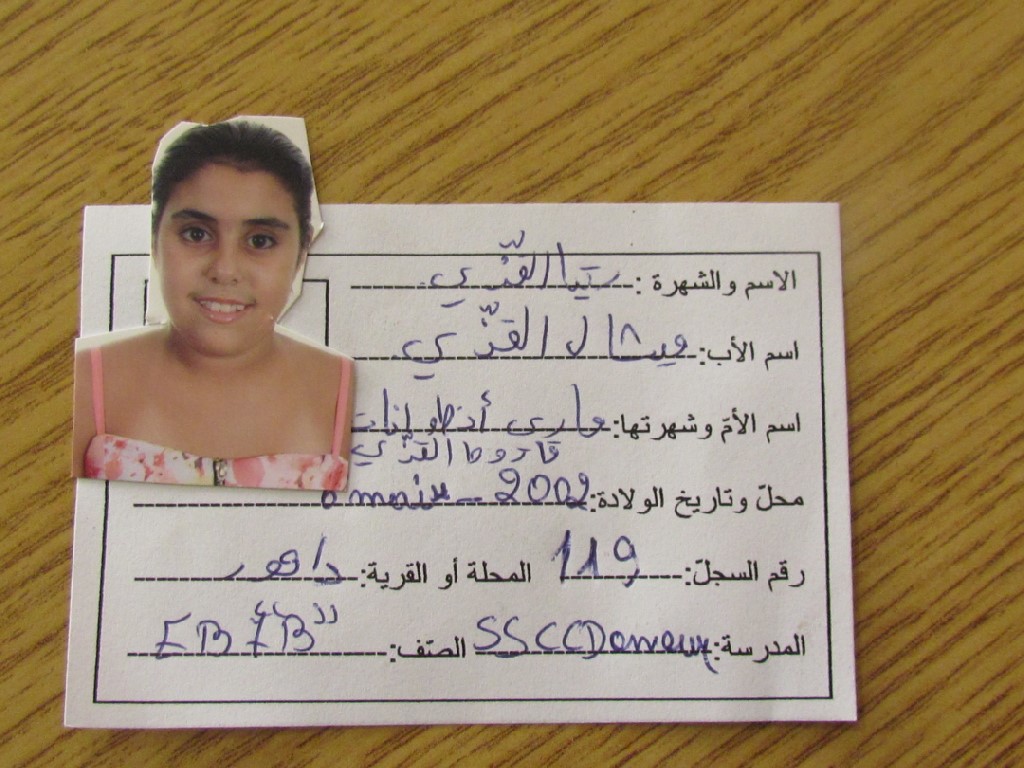 الاسم والشهرة: ريتا القزّي
اسم الأب: ميشال القزّي
اسم الأمّ وشهرتها: ماري أنطوانات
القزّي
محلّ وتاريخ الولادة: 2002
رقم السجلّ: 119 المحلة أو القرية:
المدرسة: SSCC الصّف: EB